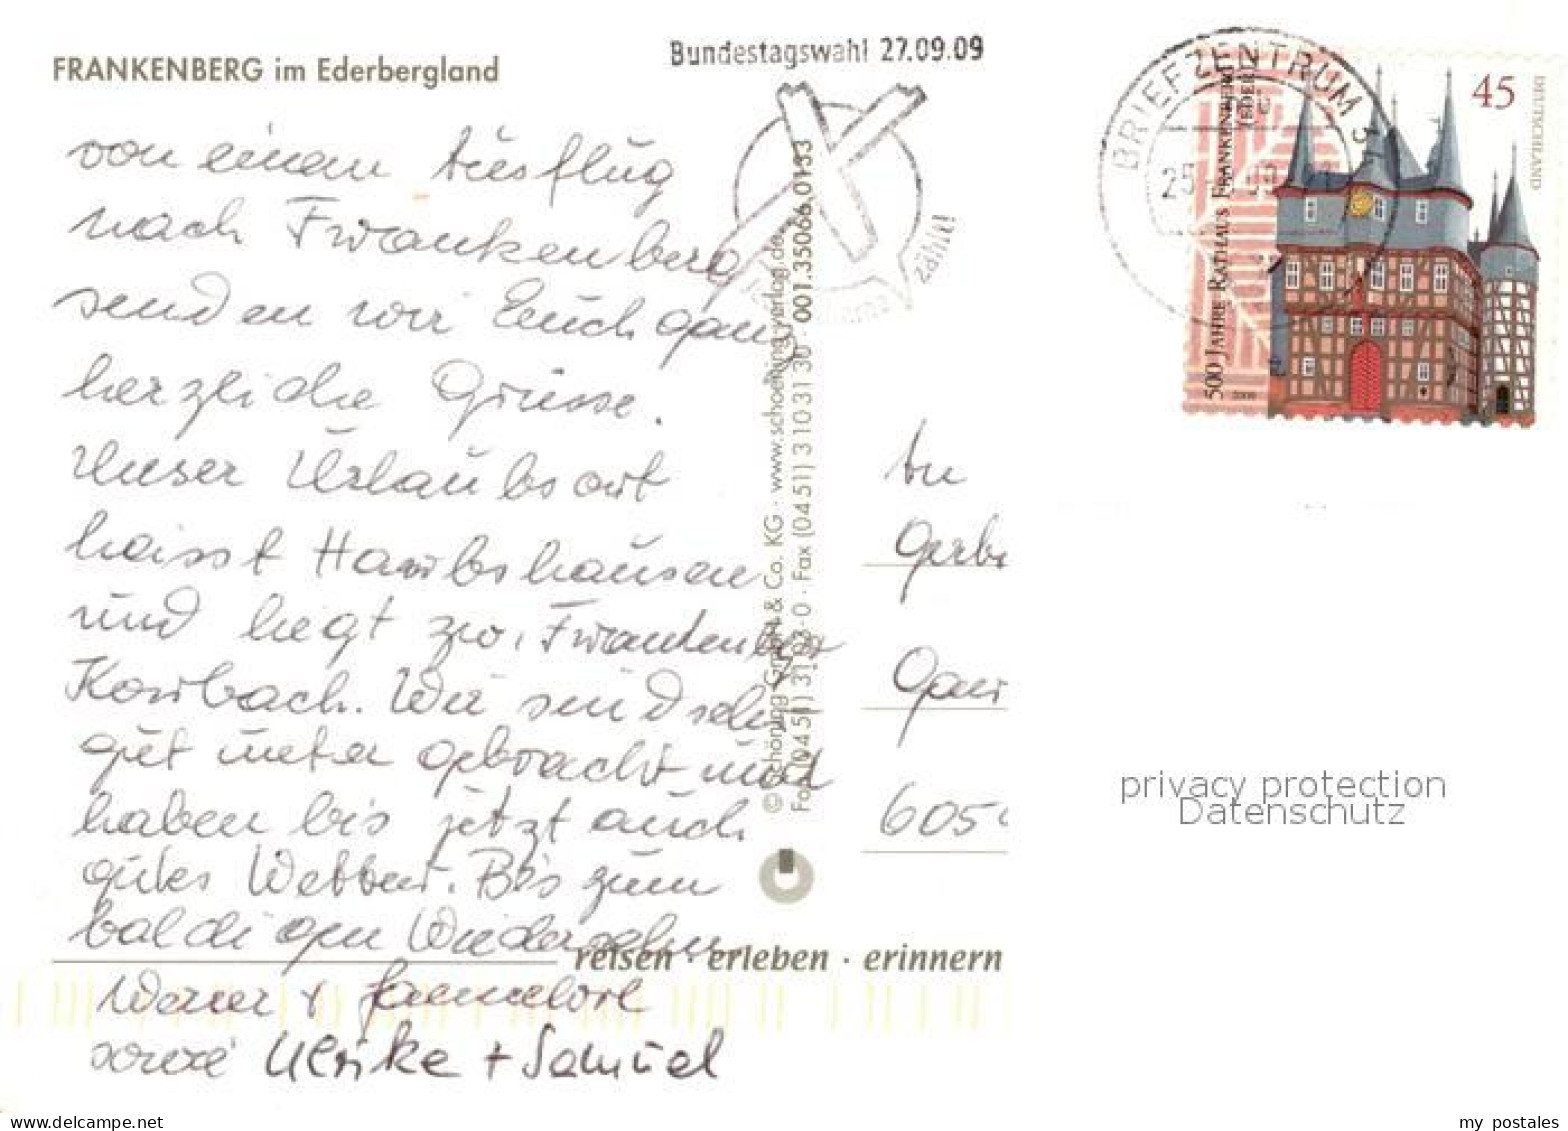 FRANKENBERG im Ederbergland
Bundestagswahl 27.09.09
zählt!
BRIEFZENTRUM 3
25
45
DEUTSCHLAND
500 JAHRE RATHAUS FRANKENBERG
(EDER)
von einem Ausflug
nach Frankenberg
senden wir Euch ganz
herzliche Grüsse.
Unser Urlaubsort
heisst Haubshausen
und liegt zw. Frankenberg
Korbach. Wir sind sehr
gut unter gebracht und
haben bis jetzt auch
gutes Wetter. Bis zum
baldigen Wiedersehen
Werner + Hannelore
sowie Ulrike + Samuel
© Schöning GmbH & Co. KG · www.schoening-verlag.de
Fax (04 51) 3 10 31 30 · 001.35066.0153
An
Gerb
605
reisen · erleben · erinnern
privacy protection
Datenschutz
my postales